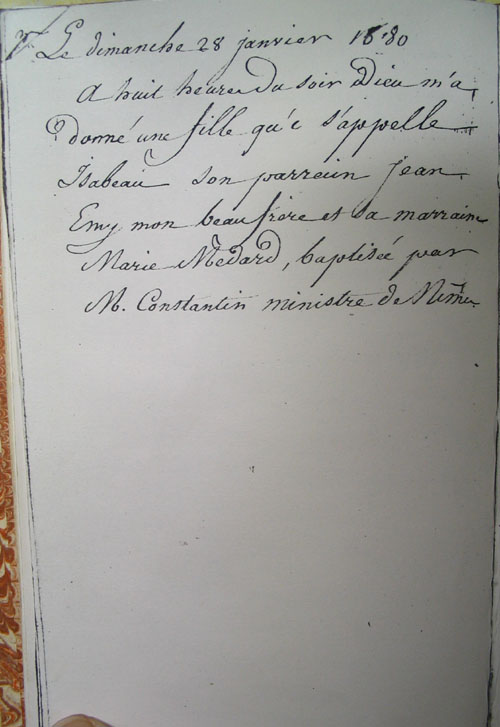 Le dimanche 28 janvier 1680
A huit heure du soir Dieu m'a
donné une fille qu'i s'appelle
Isabeau son parrein Jean
Emy mon beau frère et sa marraine
Marie Médard, baptisée par
M. Constantin ministre de Nimes